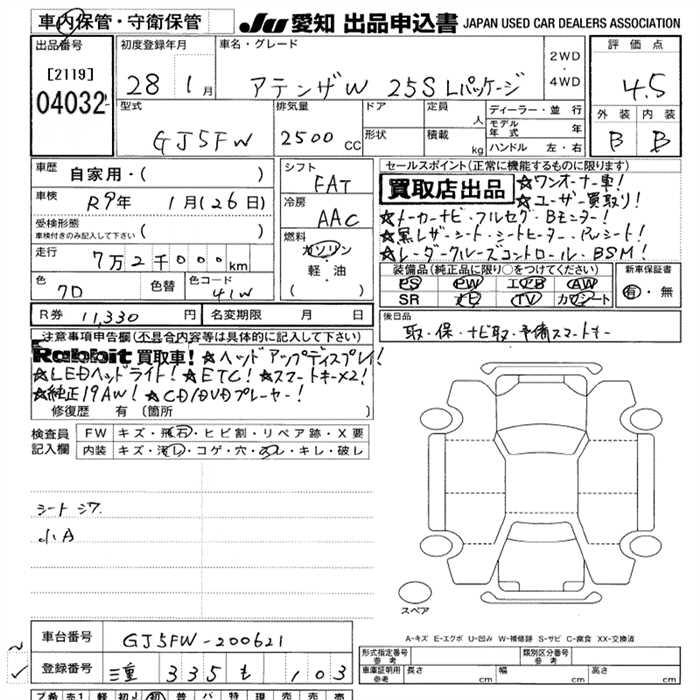 車内保管・守衛保管 JU 愛知 出品申込書 JAPAN USED CAR DEALERS ASSOCIATION
出品番号 初度登録年月 車名・グレード 2WD ・ 4WD 評価点
[2119] 28 1月 アテンザW 25S Lパッケージ 4.5
04032
型式 排気量 ドア 定員 人 ディーラー・並行 外装 内装
GJ5FW 2500 CC 形状 積載 kg モデル年式 年 B B
ハンドル 左・右
車歴 自家用・( ) シフト セールスポイント(正常に機能するものに限ります)
FAT 買取店出品 ★ワンオーナー車!
車検 R9年 1月(26日) 冷房 ★ユーザー買取り!
AAC ★メーカーナビ・フルセグ・Bモニター!
受検形態 ( ) ★黒レザーシート・シートヒーター・PWシート!
車検付きのみ記入して下さい 燃料 ★レーダークルーズコントロール・BSM!
走行 7万2千000km ガソリン 装備品(純正品に限り○をつけてください) 新車保証書
軽・油 PS PW エアB AW 有・無
色 7D 色替 色コード 41W ( ) SR ナビ TV カワシート
R券 11,330 円 名変期限 月 日 後日品
取・保・ナビ取・予備スマートキー
注意事項申告欄(不具合内容等は具体的に記入して下さい)
Rabbit 買取車! ★ヘッドアップディスプレイ!
★LEDヘッドライト! ★ETC! ★スマートキーX2!
★純正19AW! ★CD/DVDプレーヤー!
修復歴 有 (箇所 )
検査員 FW キズ・飛石・ヒビ割・リペア跡・X要
記入欄 内装 キズ・汚レ・コゲ・穴・スレ・キレ・破レ
シートシワ
小A
スペア
A-キズ E-エクボ U-凹み W-補修跡 S-サビ C-腐食 XX-交換済
車台番号 GJ5FW-200621
形式指定番号 参考 類別区分番号 参考
登録番号 三重 335 も 103
車庫証明用 参考 長さ cm 幅 cm 高さ cm